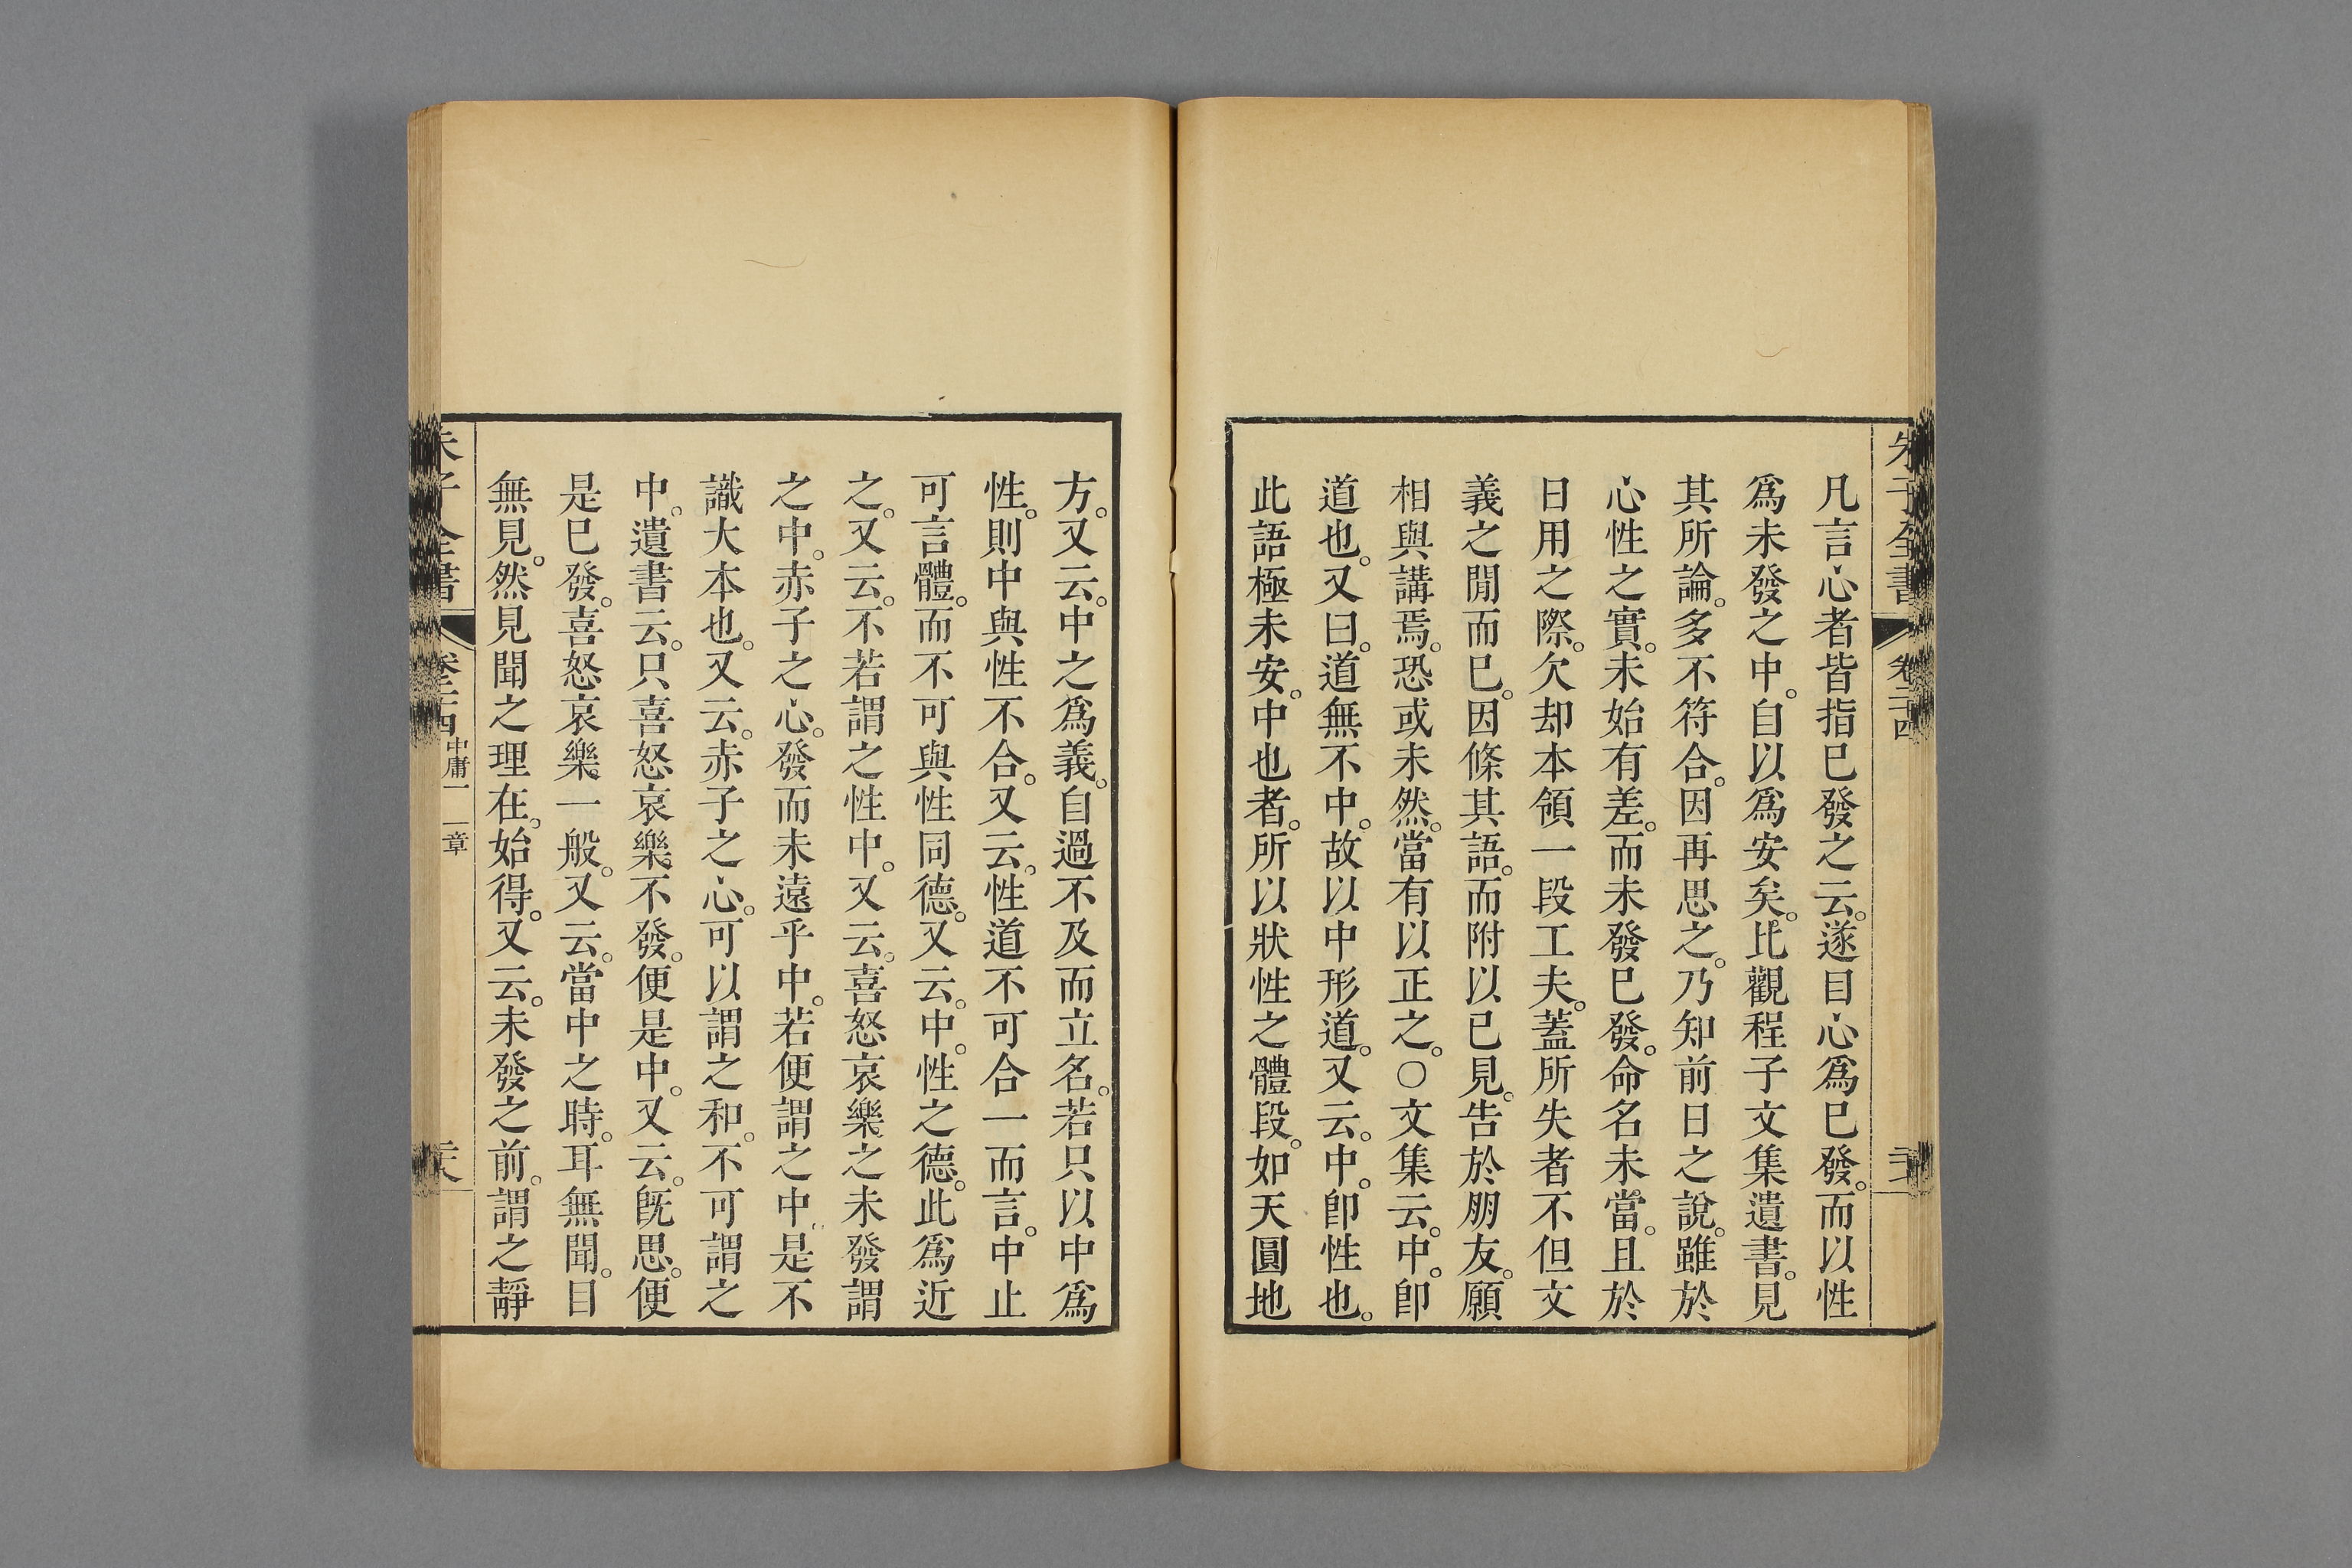 朱子全書 卷二十四
凡言心者皆指巳發之云。遂目心爲巳發。而以性
爲未發之中。自以爲安矣。比觀程子文集遺書。見
其所論。多不符合。因再思之。乃知前日之說。雖於
心性之實。未始有差。而未發巳發。命名未當。且於
日用之際。欠却本領一段工夫。蓋所失者不但文
義之閒而巳。因條其語。而附以已見。告於朋友。願
相與講焉。恐或未然。當有以正之。○文集云。中。卽
道也。又曰。道無不中。故以中形道。又云。中。卽性也。
此語極未安。中也者。所以狀性之體段。如天圓地
方。又云。中之爲義。自過不及而立名。若只以中爲
性。則中與性不合。又云。性道不可合一而言。中止
可言體。而不可與性同德。又云。中。性之德。此爲近
之。又云。不若謂之性中。又云。喜怒哀樂之未發謂
之中。赤子之心。發而未遠乎中。若便謂之中。是不
識大本也。又云。赤子之心。可以謂之和。不可謂之
中。遺書云。只喜怒哀樂不發。便是中。又云。旣思。便
是巳發。喜怒哀樂一般。又云。當中之時。耳無聞。目
無見。然見聞之理在。始得。又云。未發之前。謂之靜
朱子全書 卷二十四 中庸一 一章